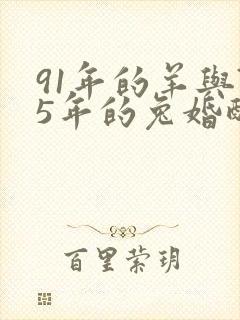 91年的羊與
5年的兔婚配
百里萦玥